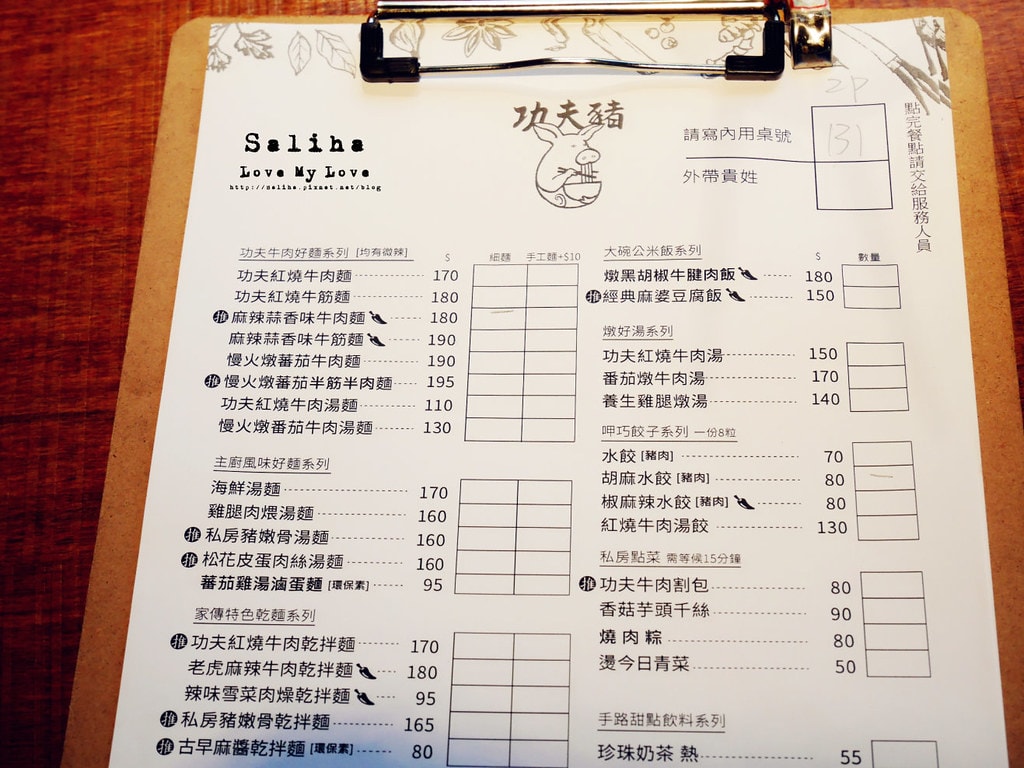 功夫豬
Saliha
Love My Love
http://saliha.pixnet.net/blog
2P
請寫內用桌號 131
外帶貴姓
點完餐點請交給服務人員
功夫牛肉好麵系列 [均有微辣] $ 細麵 手工麵+$10
功夫紅燒牛肉麵 170
功夫紅燒牛筋麵 180
推 麻辣蒜香味牛肉麵 180
麻辣蒜香味牛筋麵 190
慢火燉蕃茄牛肉麵 190
推 慢火燉蕃茄半筋半肉麵 195
功夫紅燒牛肉湯麵 110
慢火燉番茄牛肉湯麵 130
主廚風味好麵系列
海鮮湯麵 170
雞腿肉煨湯麵 160
推 私房豬嫩骨湯麵 160
推 松花皮蛋肉絲湯麵 160
蕃茄雞湯滷蛋麵 [環保素] 95
家傳特色乾麵系列
推 功夫紅燒牛肉乾拌麵 170
老虎麻辣牛肉乾拌麵 180
辣味雪菜肉燥乾拌麵 95
推 私房豬嫩骨乾拌麵 165
推 古早麻醬乾拌麵 [環保素] 80
大碗公米飯系列 $ 數量
燉黑胡椒牛腱肉飯 180
推 經典麻婆豆腐飯 150
燉好湯系列
功夫紅燒牛肉湯 150
番茄燉牛肉湯 170
養生雞腿燉湯 140
呷巧餃子系列 一份8粒
水餃 [豬肉] 70
胡麻水餃 [豬肉] 80
椒麻辣水餃 [豬肉] 80
紅燒牛肉湯餃 130
私房點菜 需等候15分鐘
推 功夫牛肉割包 80
香菇芋頭千絲 90
燒肉粽 80
燙今日青菜 50
手路甜點飲料系列
珍珠奶茶 熱 55